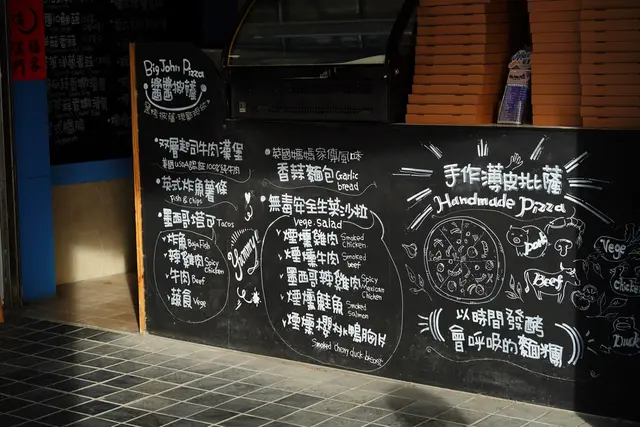 Big John Pizza
醬醬披薩
双層起司牛肉漢堡
美國USDA認証100%純牛肉
英式炸魚薯條
Fish & chips
墨西哥塔可 Tacos
炸魚 Baja Fish
辣雞肉 Spicy chicken
牛肉 Beef
蔬食 Vege
Yummy!
英國媽媽家傳風味
香蒜麵包 Garlic bread
無毒安全生菜沙拉
Vege. Salad
煙燻雞肉 Smoked chicken
煙燻牛肉 Smoked beef
墨西哥辣雞肉 Spicy Mexican chicken
煙燻鮭魚 Smoked Salmon
煙燻櫻桃鴨胸片
Smoked cherry duck breast
手作薄皮比薩
Handmade Pizza
Pork
Beef
以時間發酵
會呼吸的麵糰
Vege
Chicken
Duck